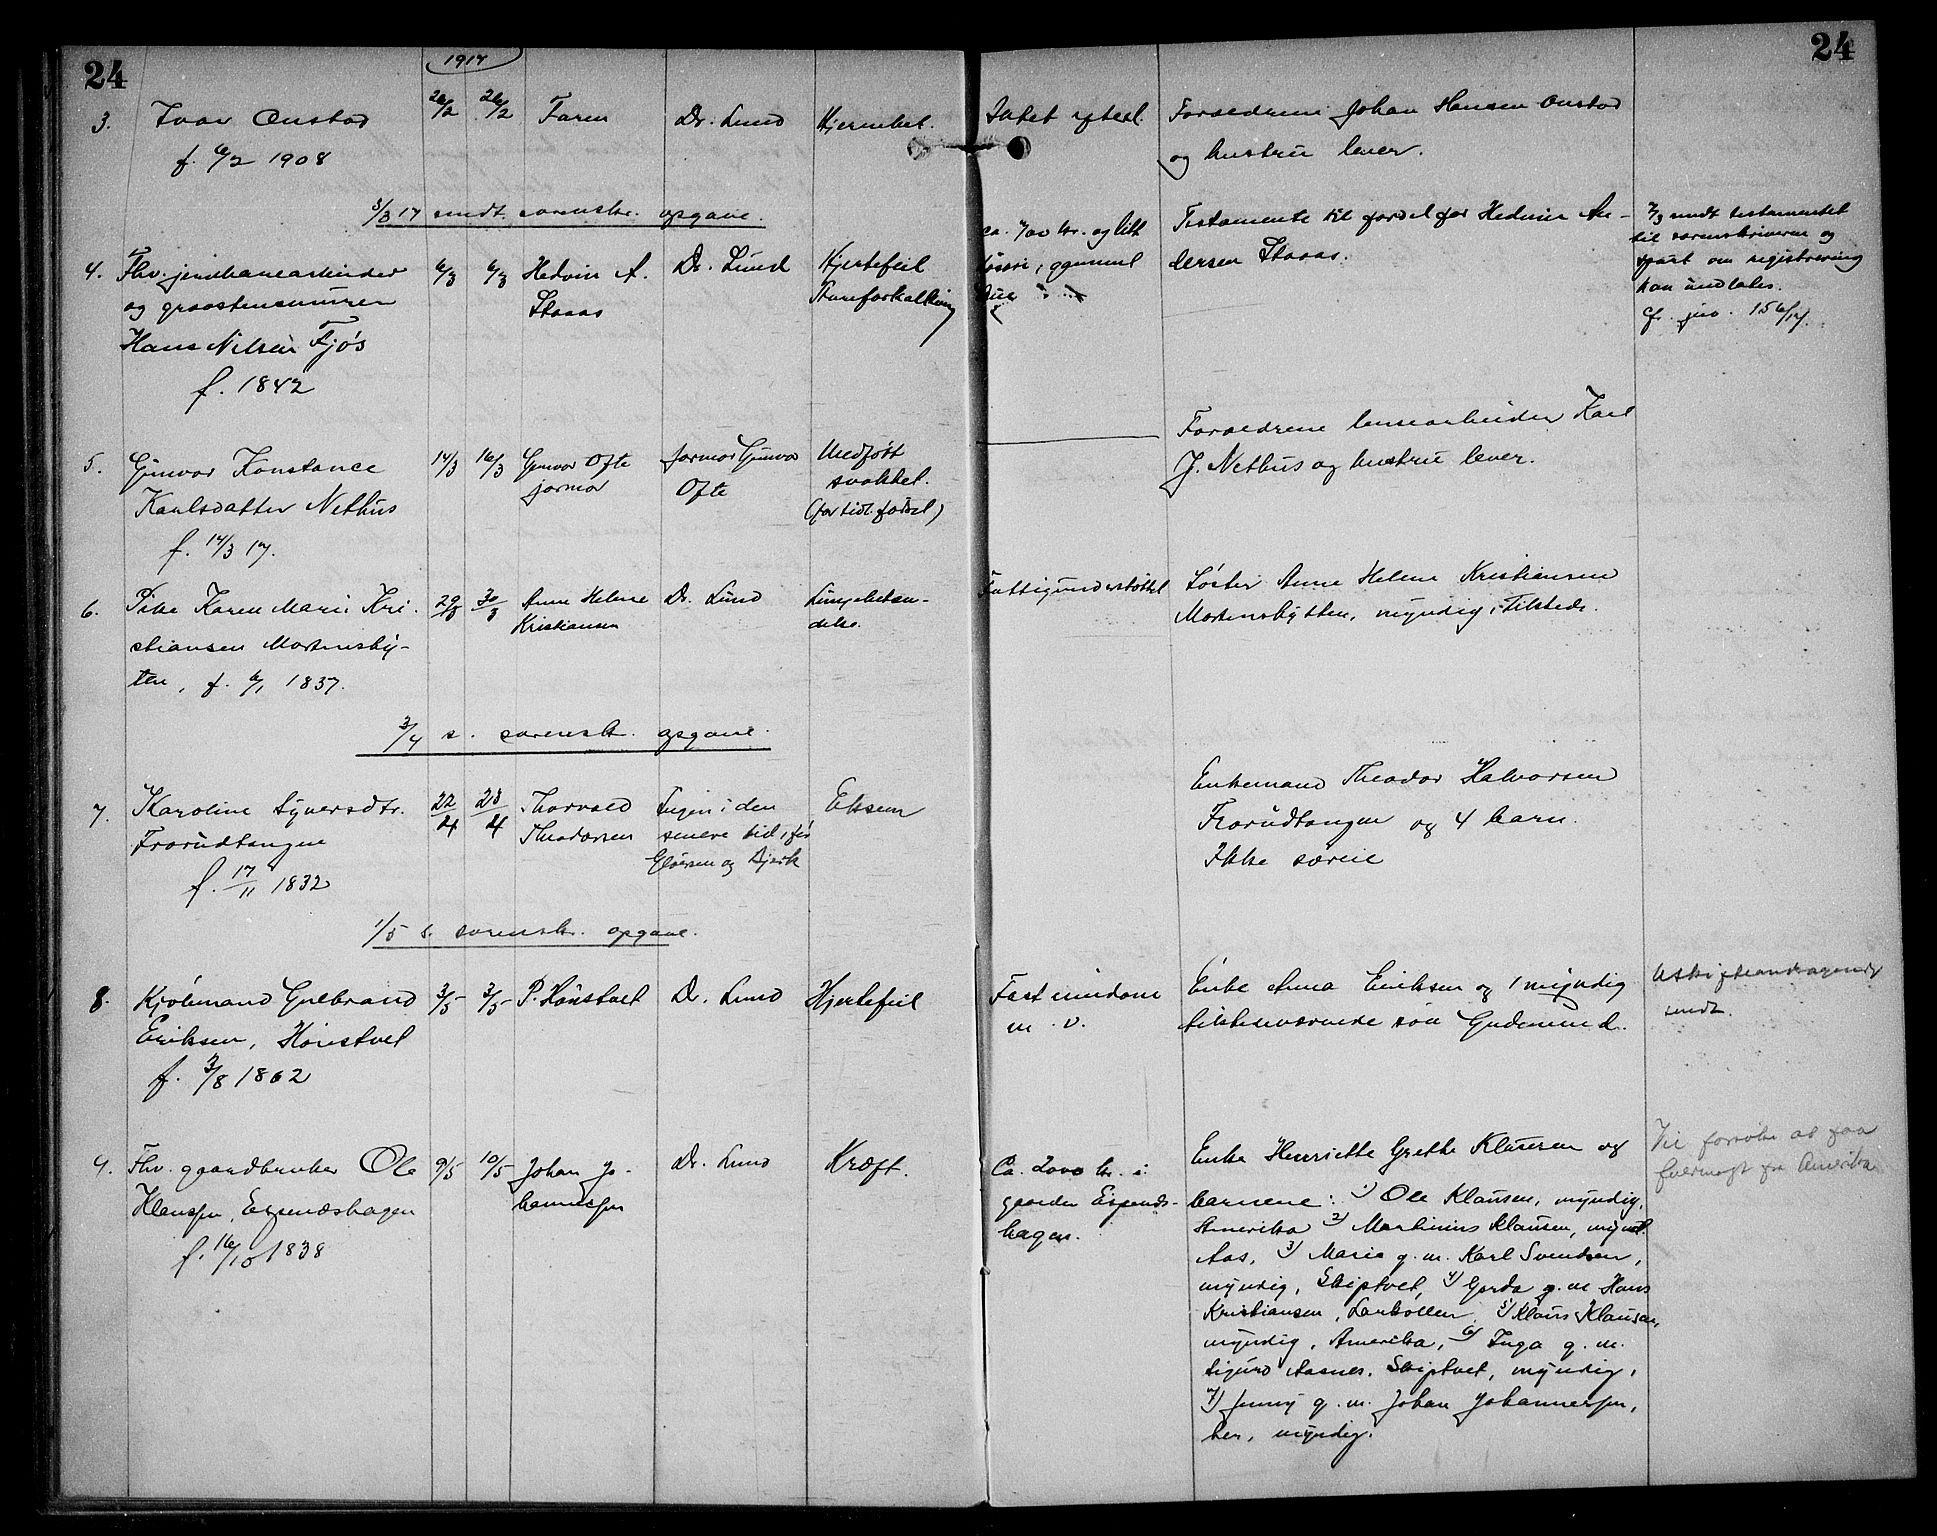 24
1917
24
3.
Ivar Onstad
f. 6/2 1908
26/2
26/2
Faren
Dr. Lund
Hjernebet.
Intet efterl.
Forældrene Johan Hansen Onstad
og hustru lever.
3/3 17 sendt sorenskr. opgave.
4.
Fhv. jernbanearbeider
og graastensmurer
Hans Nilsen Fjøs
f. 1842
6/3
6/3
Hedvin A.
Staaas
Dr. Lund
Hjertefeil
Aareforkalkning
ca. 700 kr. og litt
løsøre, gammel
stue
Testamente til fordel for Hedvin An-
dersen Staaas.
7/3 sendt testamentet
til sorenskriveren og
spurt om registrering
kan undlates.
Cfr. jno. 156/17.
5.
Gunvor Konstance
Karlsdatter Nethus
f. 14/3 17.
14/3
16/3
Gunvor Ofte
farmor
farmor Gunvor
Ofte
Medfødt
svakhet.
(for tidl. fødsel)
Forældrene lensearbeider Karl
J. Nethus og hustru lever.
6.
Pike Karen Marie Kri-
stiansen Mortensby-
ten, f. 6/1 1837.
29/3
30/3
Anne Helene
Kristiansen
Dr. Lund
Lungebetæn-
delse.
Fattigunderstøttet
Søster Anne Helene Kristiansen
Mortensbytten, myndig, Tilstede.
3/4 s. sorenskr. opgave.
7.
Karoline Syversdtr.
Frorudtangen
f. 17/11 1832
22/4
23/4
Thorvald
Theodorsen
Ingen i den
senere tid, før
Gløersen og Bjerk
Eksem
Enkemand Theodor Halvorsen
Frorudtangen og 4 barn.
Ikke særeie
1/5 s. sorenskr. opgave.
8.
Kjøbmand Gulbrand
Eriksen, Hønstvet
f. 3/8 1862
3/5
3/5
P. Hønstvet
Dr. Lund
Hjertefeil
Fast eiendom
m. v.
Enke Anna Eriksen og 1 myndig
tilstedeværende søn Gudmund.
Uskifteandragende
sendt.
9.
Fhv. gaardbruker Ole
Klausen, Espenæshagen
f. 16/10 1838
9/5
10/5
Johan Jo-
hannessen
Dr. Lund
Kræft.
Ca. 2000 kr. i
gaarden Espenæs-
hagen.
Enke Henriette Grethe Klausen og
barnene: 1) Ole Klausen, myndig,
Amerika 2) Martinius Klausen, mynd.
Aas, 3) Marie g. m. Karl Svendsen,
myndig, Skiptvet, 4) Gerda g. m. Hans
Kristiansen, Larkollen, 5) Klaus Klausen,
myndig, Amerika, 6) Inga g. m.
Sigurd Aasnes, Skiptvet, myndig,
7) Jenny g. m. Johan Johannessen,
her, myndig.
Vil forsøke at faa
fuldmagt fra Amerika